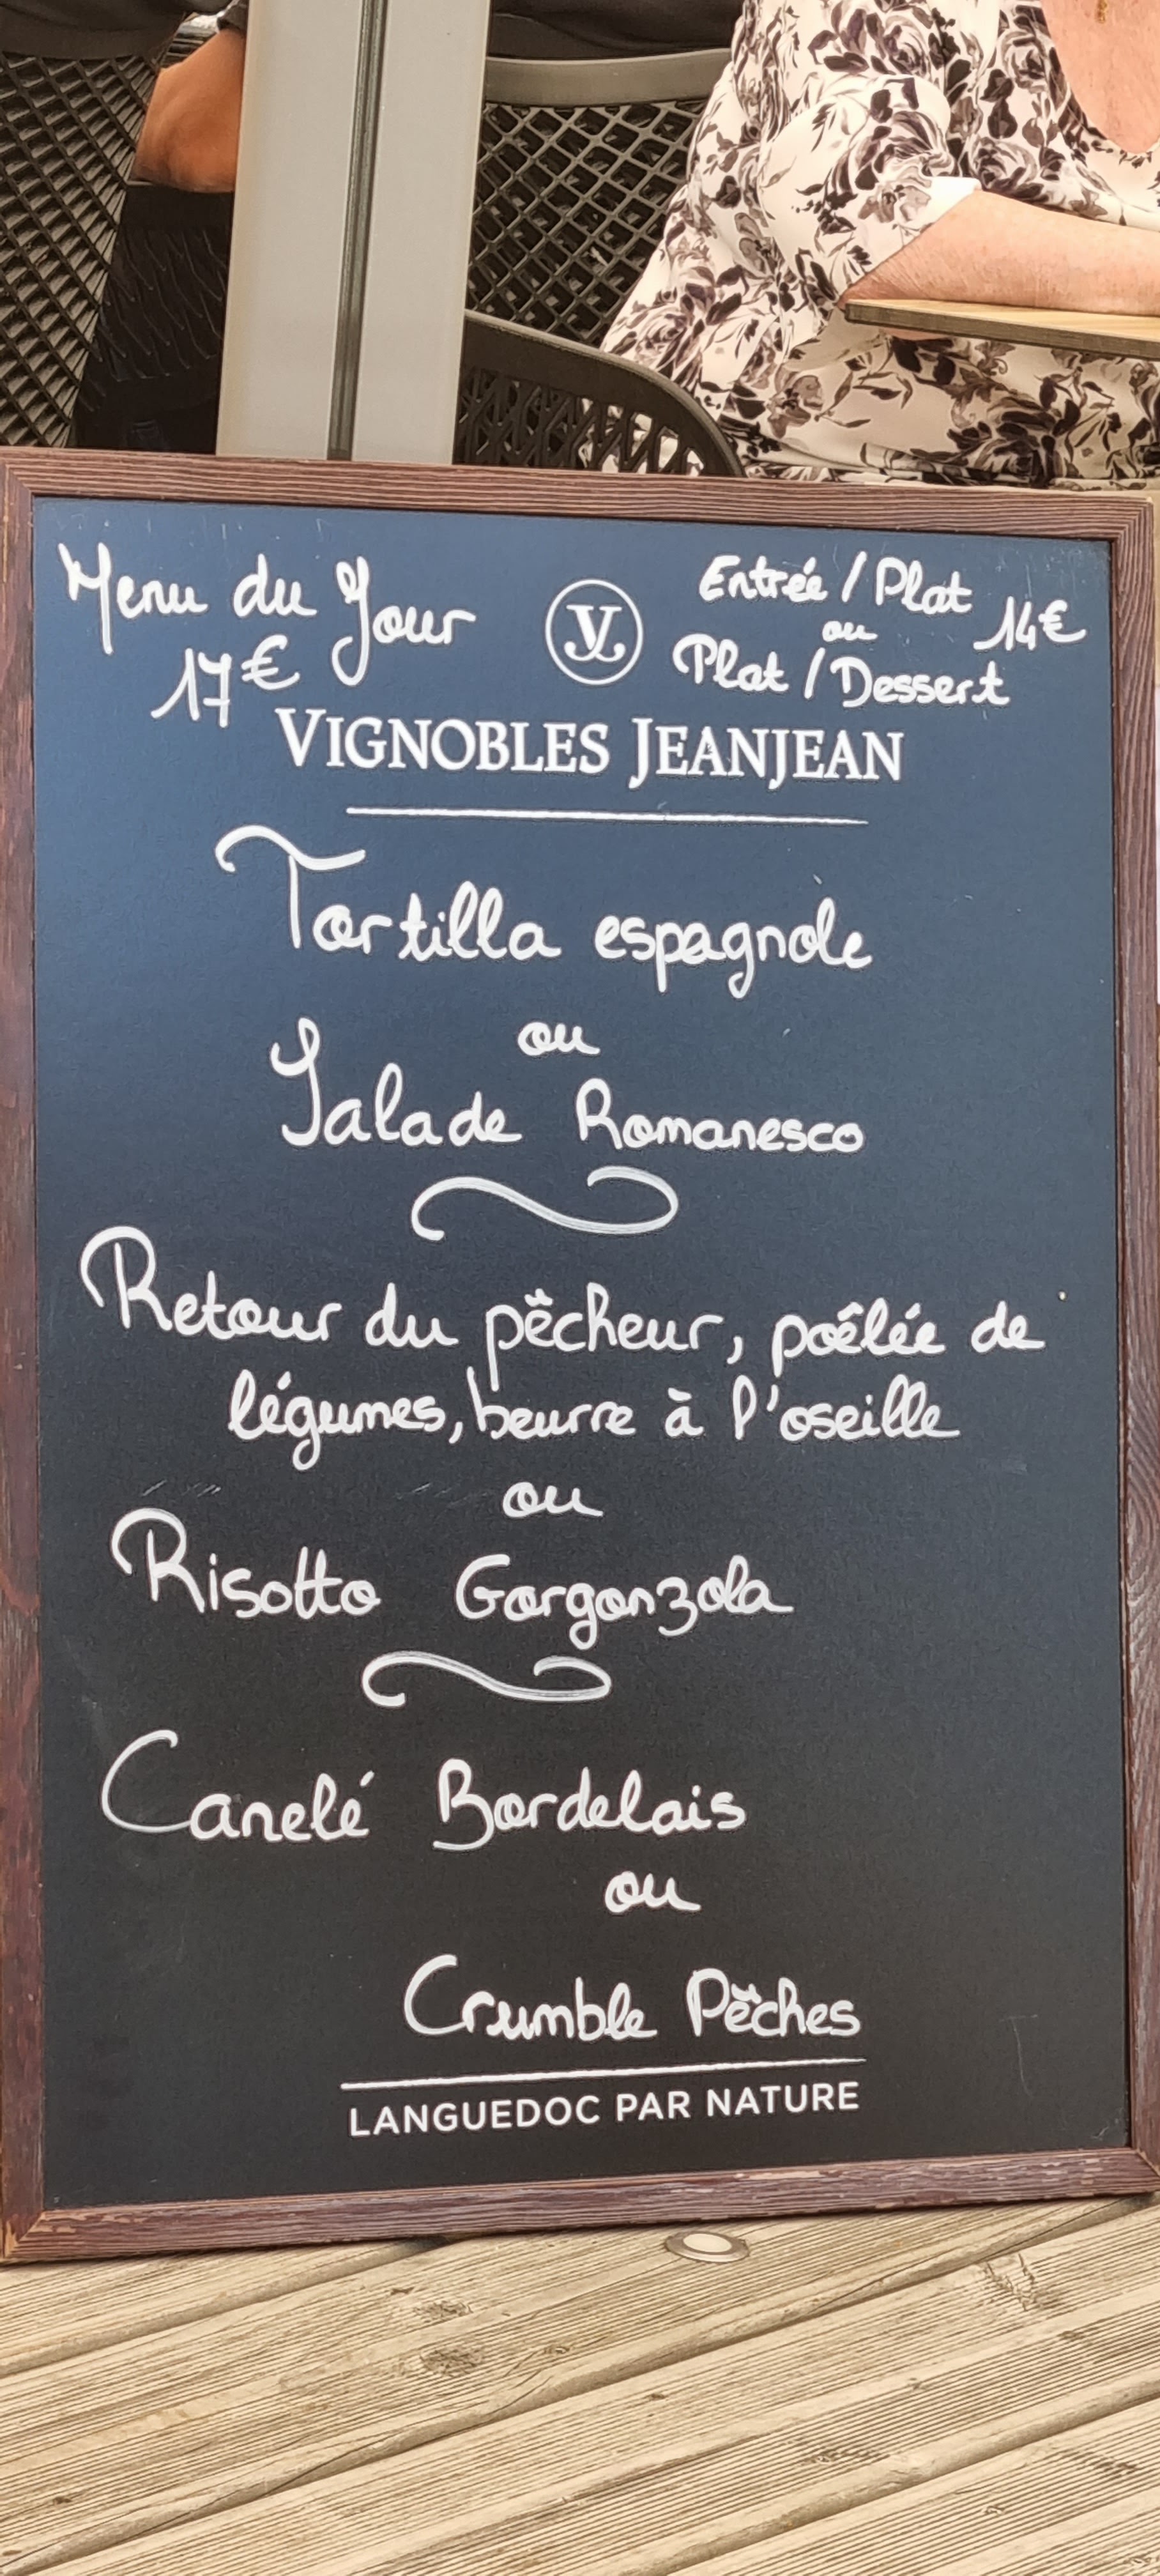 Menu du Jour
17€
Entrée / Plat
ou
14€
Plat / Dessert
VJ
VIGNOBLES JEANJEAN
Tortilla espagnole
ou
Salade Romanesco
Retour du pêcheur, poêlée de
légumes, beurre à l'oseille
ou
Risotto Gorgonzola
Canelé Bordelais
ou
Crumble Pêches
LANGUEDOC PAR NATURE